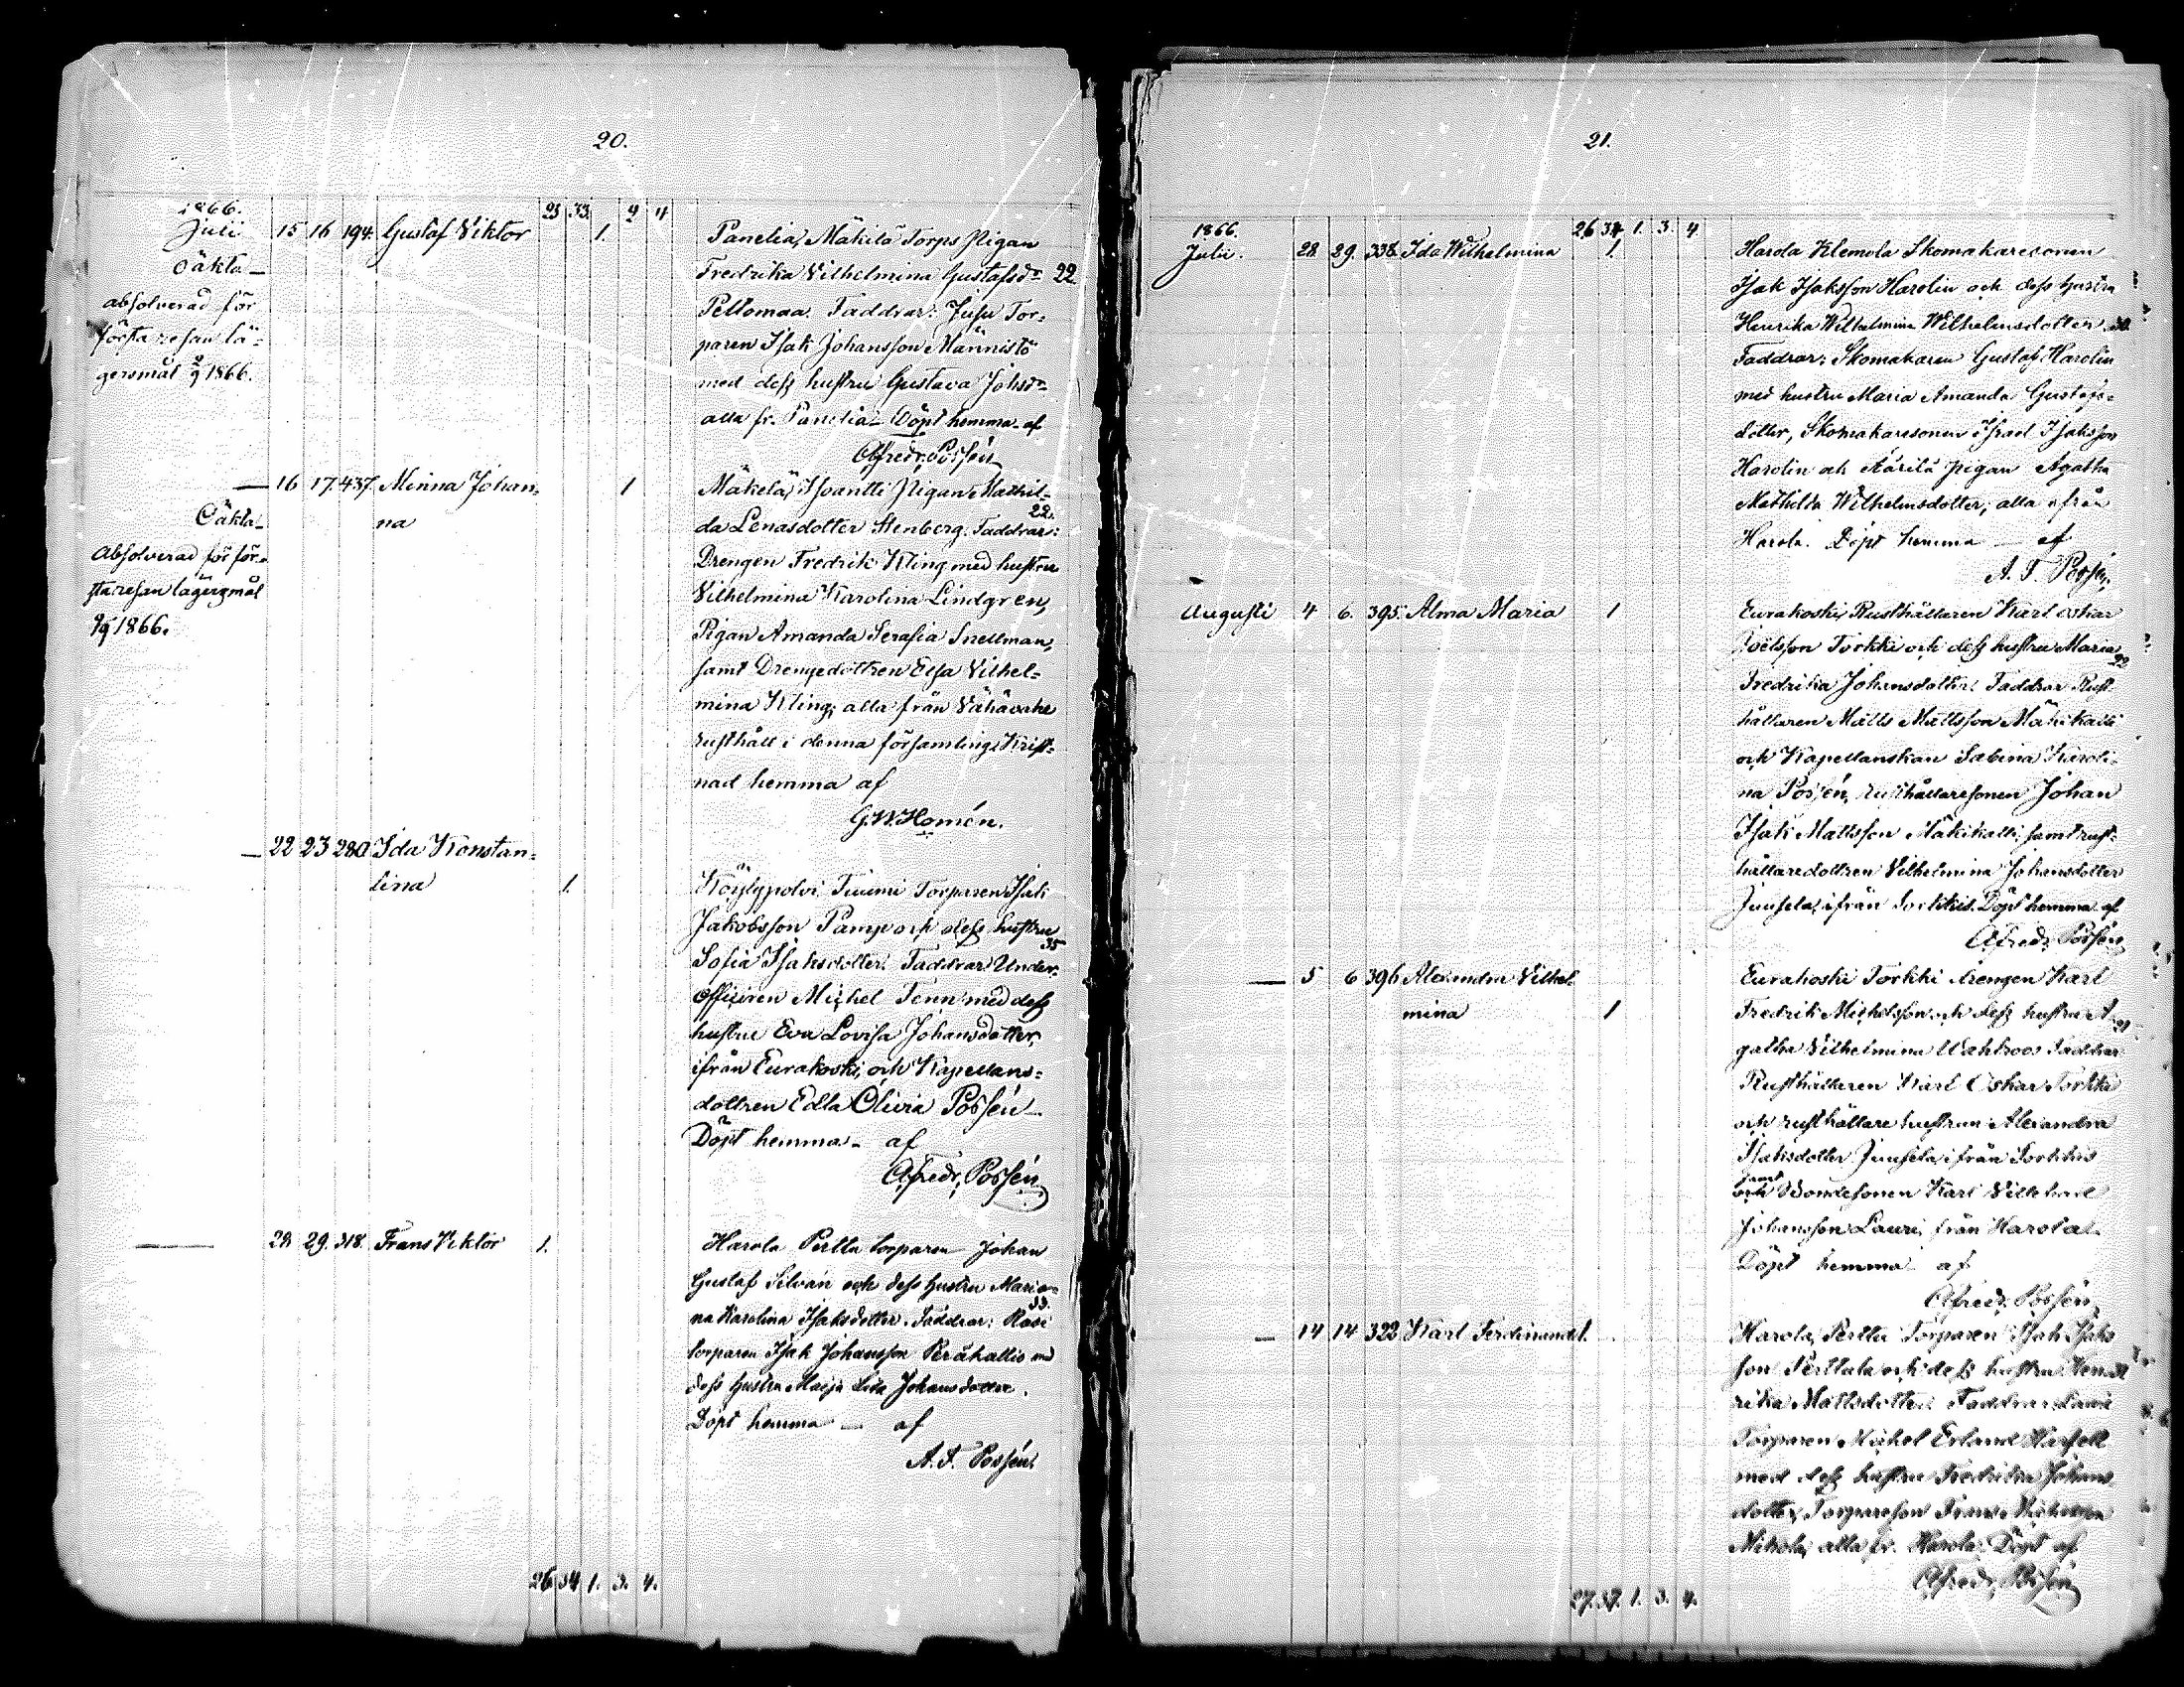 20.
1866. 25 33. 2 4
Juli 15 16 194. Gustaf Viktor 1.
Oäkta_
absolverad för
första resan lä-
gersmål 1866.
Panelia, Mäkilä Torps Pigan
Fredrika Vilhelmina Gustafsdr 22
Peltomaa. Faddrar: Juju Tor-
paren Isak Johansson Männistö
med dess hustru Gustava Johsdr
alla fr. Panelia. Döpt hemma af
Alfredr. Possén
— 16 17. 437. Minna Johan-
na 1
Oäkta_
Absolverad för för-
sta resan lägersmål
1866.
Mäkelä, Isoantti Pigan Mathil-
da Lenasdotter Stenberg. Faddrar: 22.
Drengen Fredrik Kling med hustru
Vilhelmina Karolina Lindgren,
Pigan Amanda Serafia Snellman,
samt Drengedottren Elsa Vilhel-
mina Kling; alla från Vähävahe
rusthåll i denna församling. Krist-
nad hemma af
G.W.Homén.
— 22 23 280 Ida Konstan-
tina 1.
Köylypolvi Tuumi Torparen Isak
Jakobsson Pamp och dess hustru
Sofia Isaksdotter. Faddrar: Under- 35
officiren Michel Tenn med dess
hustru Eva Lovisa Johansdotter,
ifrån Eurakoski, och Kapellans-
dottren Edla Olivia Possén_
Döpt hemma_ af
Alfredr. Possén
— 28 29. 318. Frans Viktor 1.
Harola Pertta torparen Johan
Gustaf Silvan och dess hustru Maria-
na Karolina Isaksdotter. Faddrar: 33.
torparen Isak Johansson Peräkallio md
dess hustru Maija Lisa Johansdotter.
Döpt hemma — af
A.F. Possén.
26 34 1. 3. 4.
21.
1866. 26 34 1. 3. 4.
Julii. 28. 29. 338. Ida Wilhelmina 1.
Harola Klemola Skomakaresonen
Isak Isaksson Harolin och dess hustru
Henrika Wilhelmina Wilhelmsdotter. 30.
Faddrar: Skomakaren Gustaf Harolin
med hustru Maria Amanda Gustafs-
dotter, Skomakaresonen Israel Isaksson
Harolin och pigan Agatha
Mathilda Wilhelmsdotter; alla ifrån
Harola. Döpt hemma — af
A.F. Possén.
Augusti 4 6. 395. Alma Maria 1
Eurakoski, Rusthållaren Karl Oskar
Joelsson Torkki och dess hustru Maria 22
Fredrika Johansdotter. Faddrar Rust-
hållaren Matts Mattsson Mäkikalli
och Kapellanskan Sabina Karoli-
na Possén, rusthållaresonen Johan
Isak Mattsson Mäkikalli samt rust-
hållaredottren Vilhelmina Johansdotter
Juusela, ifrån Sorkkis. Döpt hemma af
Alfredr. Possén
— 5 6 396 Alexandra Vilhel-
mina 1
Eurakoski Torkki drengen Karl
Fredrik Michelsson och dess hustru A-
gatha Vilhelmina Wahlroos Faddrar
Rusthållaren Karl Oskar Torkki
och rusthållare hustrun Alexandra
Isaksdotter Juusela, ifrån Sorkkis
samt
och Bondesonen Karl Vilhelm
Johansson Lauri, från Harola_
Döpt hemma af
Alfredr. Possén
— 14 14 322 Karl Ferdinand 1.
Harola, Perttu Torparen Isak Isaks
son Perttala och dess hustru Hen-
rika Mattsdotter. Faddrar: Lauri
Torparen Michel Erland Harsell
med dess hustru Fredrika Johans
dotter, Torpareson Frans
alla fr. Harola. Döpt af
Alfredr. Possén
27. 37. 1. 3. 4.